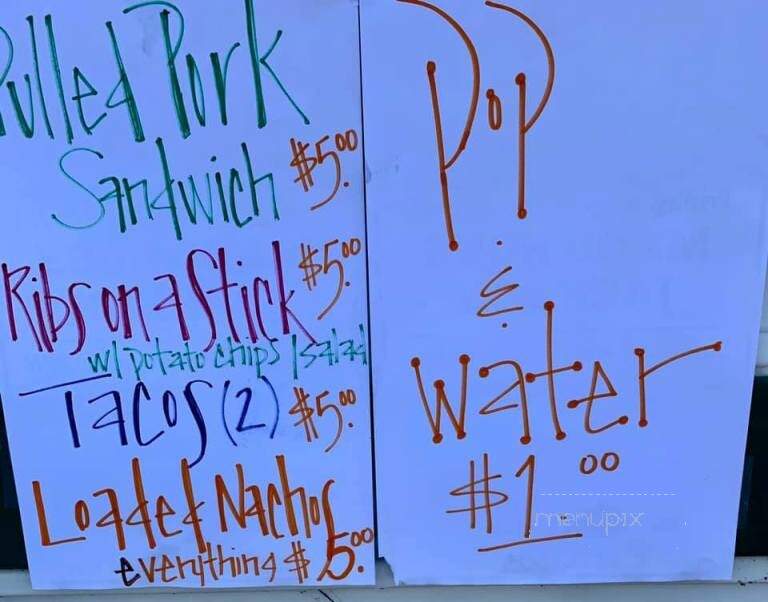 Pulled Pork
Sandwich $5.00
Ribs on a Stick $5.00
w/ potato chips / salad
Tacos (2) $5.00
Loaded Nachos
everything $5.00
Pop
&
Water
$1.00
menupix